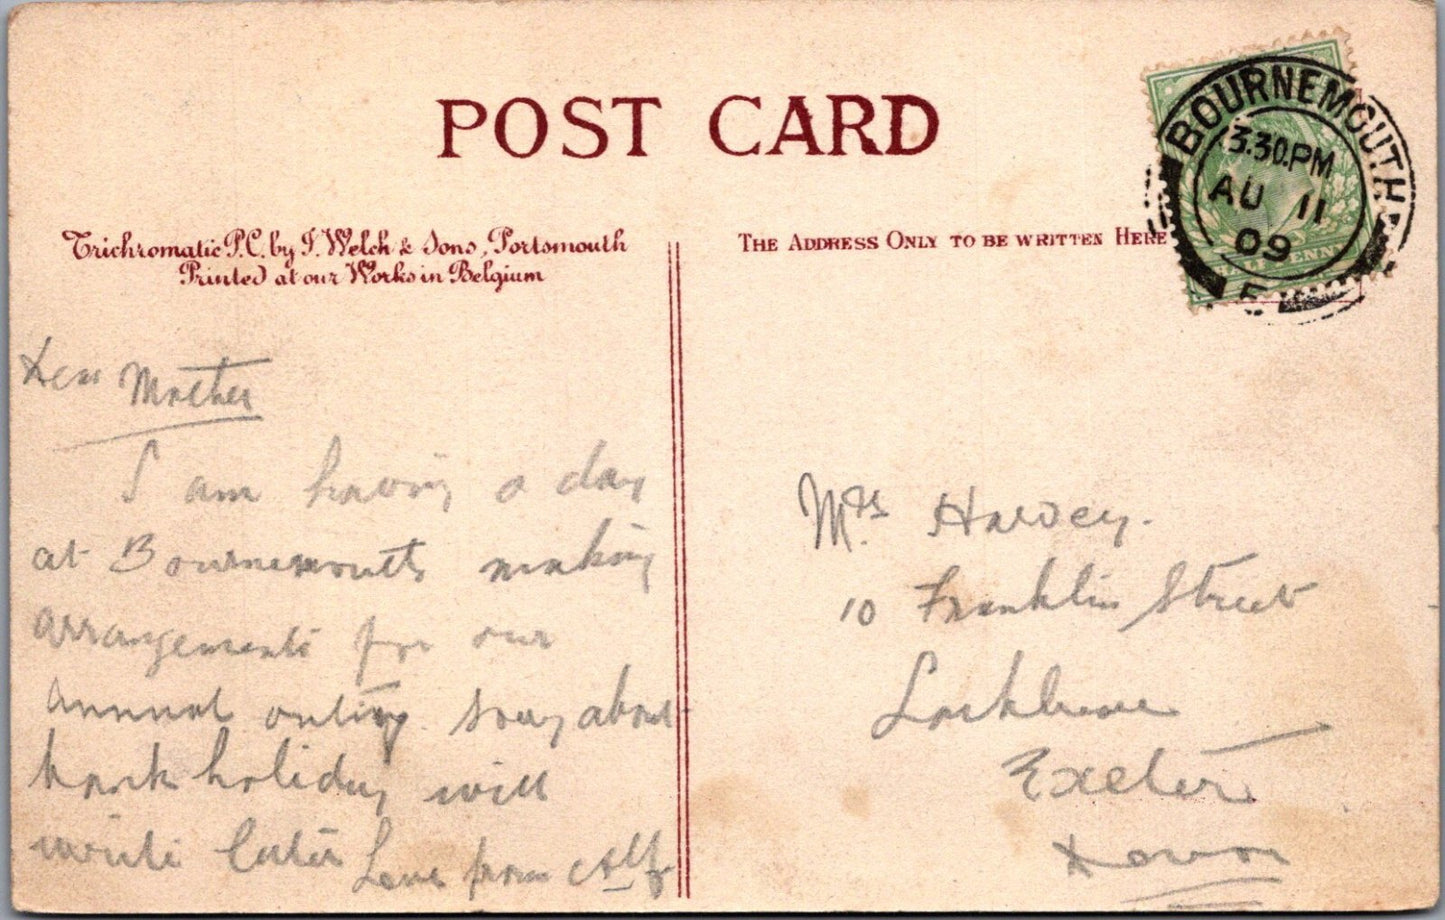 POST CARD
Trichromatic P.C. by J. Welch & Sons, Portsmouth
Printed at our Works in Belgium
THE ADDRESS ONLY TO BE WRITTEN HERE
BOURNEMOUTH
3.30.PM
AU 11
09
HALFPENNY
Dear Mother
I am having a day
at Bournemouth making
arrangements for our
annual outing. Sorry about
bank holiday will
write later Love from Alf
Mrs Harvey.
10 Franklin Street
Larkbeare
Exeter
Devon